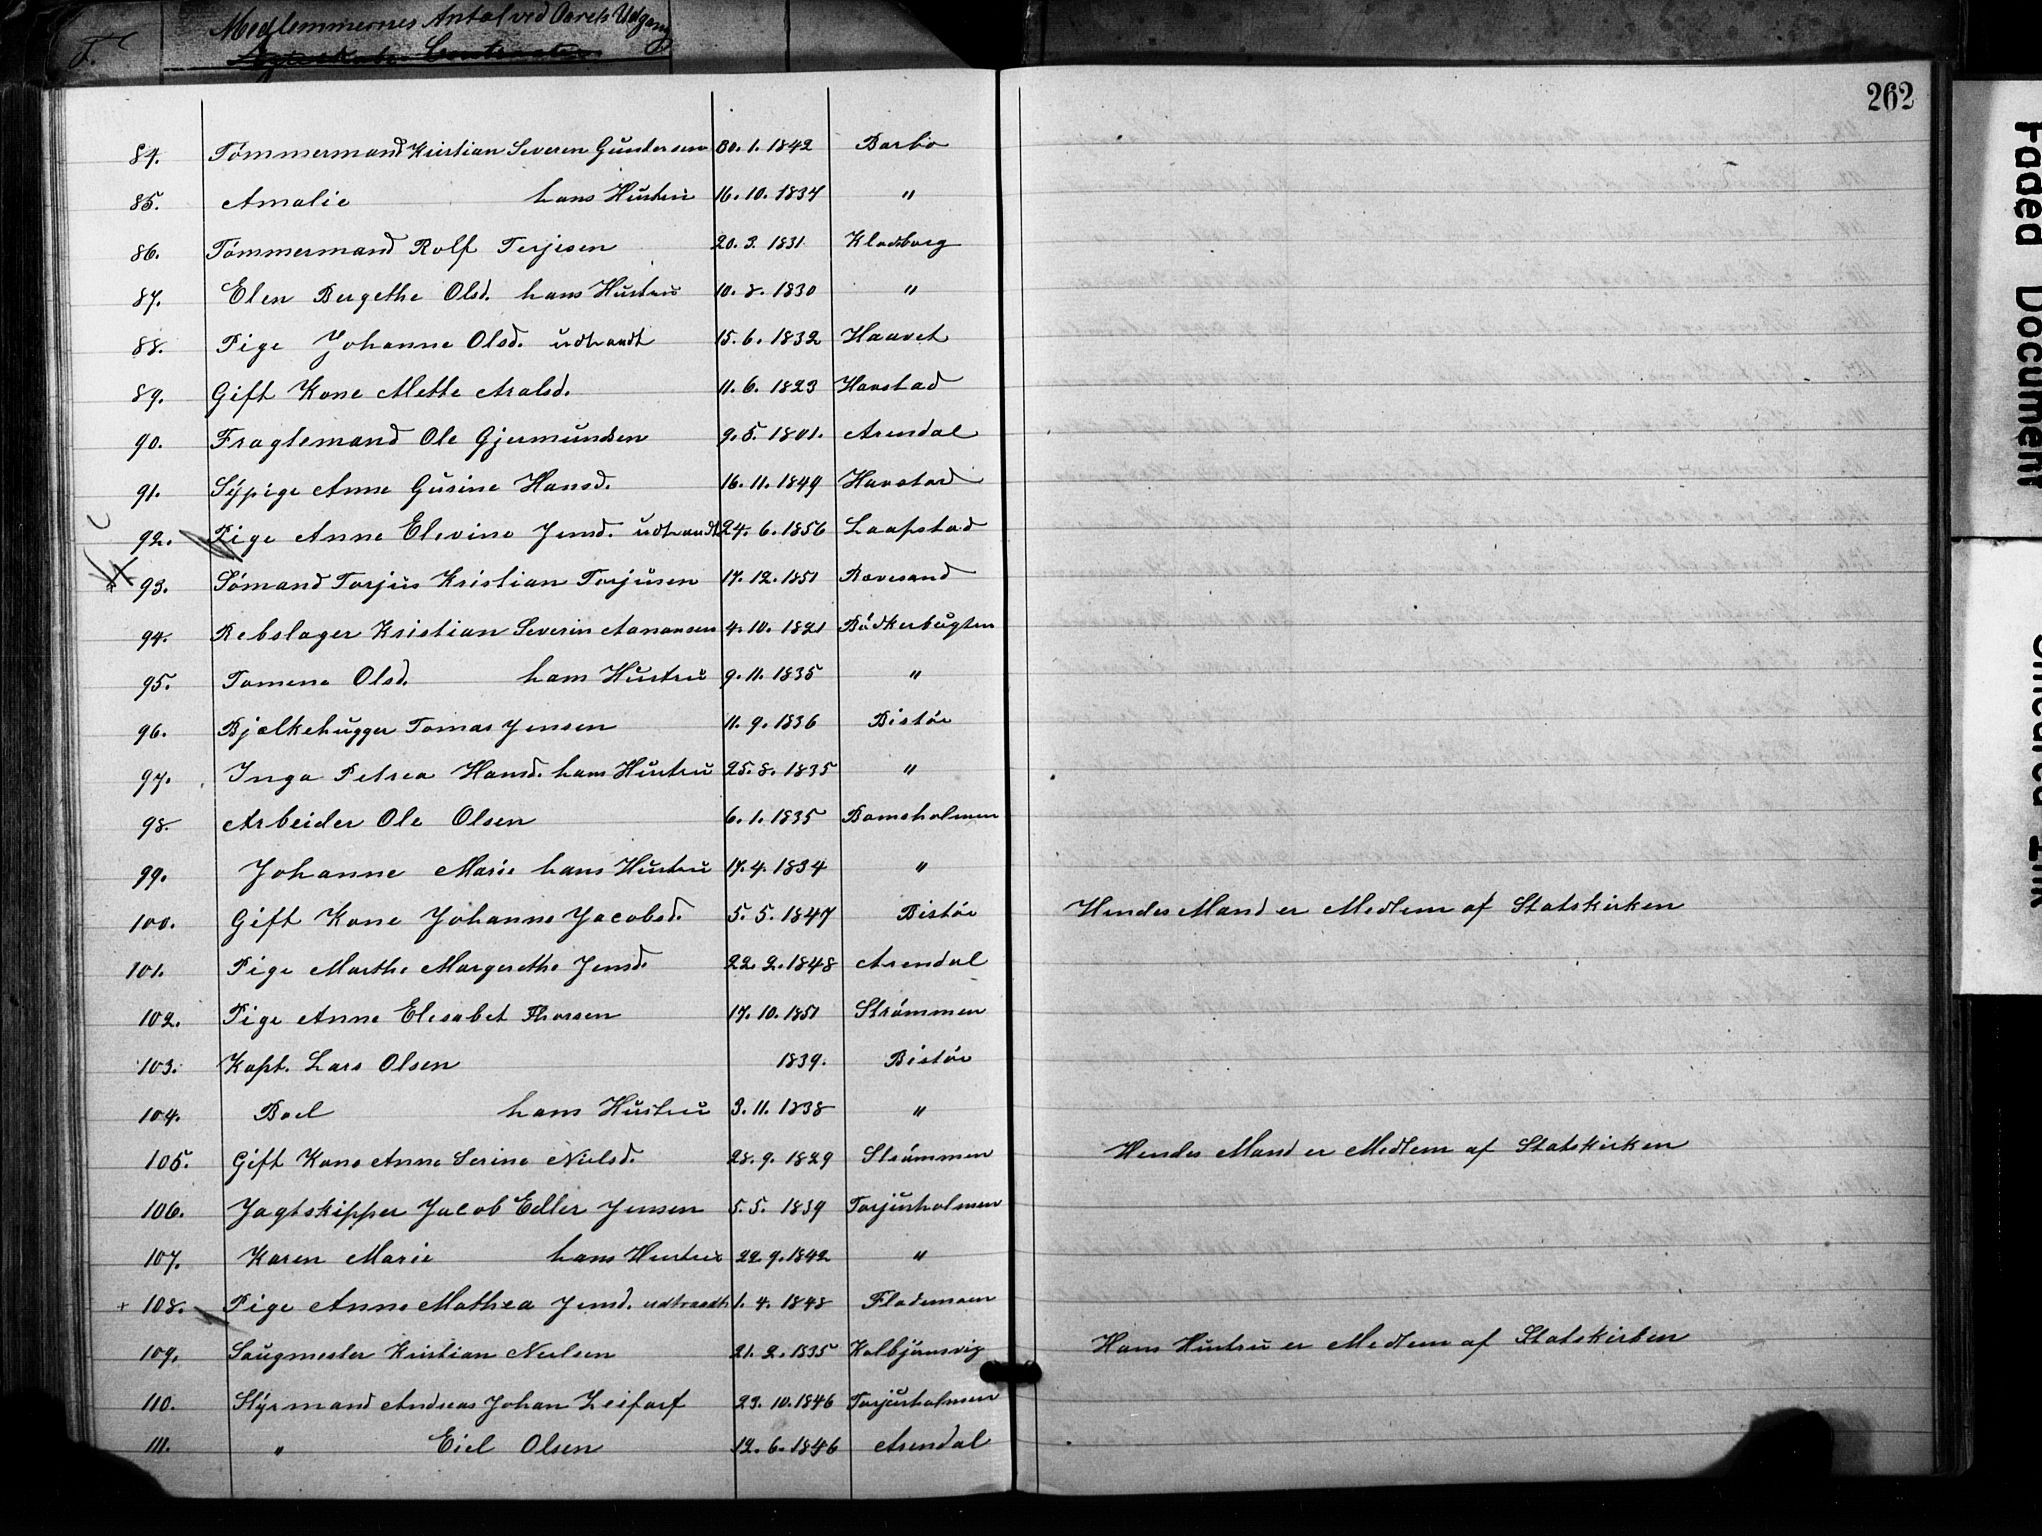 Medlemmernes Antal ved Aarets Udgang
262
84. Tømmermand Kristian Severin Gundersen 30. 1. 1842 Barbo
85. Amalie hans Hustru 16. 10. 1834 "
86. Tømmermand Rolf Terjesen 20. 3. 1831 Klodsborg
87. Elen Bergethe Olsd. hans Hustru 10. 8. 1830 "
88. Pige Johanne Olsd. udtraadt 15. 6. 1832 Haavet
89. Gift Kone Mette Aralsd. 11. 6. 1823 Havstad
90. Fragtemand Ole Gjermundsen 9. 5. 1801. Arendal
91. Sypige Anne Gusine Hansd. 16. 11. 1849 Havstad
92. Pige Anne Elevine Jensd. udtraadt 24. 6. 1856 Laapstad
93. Sømand Torjus Kristian Torjusen 17. 12. 1851 Rævesand
94. Rebslager Kristian Severin Aanonsen 4. 10. 1821 Bødkerbugten
95. Tomene Olsd. hans Hustru 9. 11. 1835 "
96. Bjælkehugger Tomas Jensen 11. 9. 1836 Bistøe
97. Inga Petrea Hansd. hans Hustru 25. 8. 1835 "
98. Arbeider Ole Olsen 6. 1. 1835 Bomsholmen
99. Johanne Marie hans Hustru 17. 4. 1834 "
100. Gift Kone Johanne Jacobsd. 5. 5. 1847 Bistøe Hendes Mand er Medlem af Statskirken
101. Pige Marthe Margrethe Jensd. 22. 2. 1848 Arendal
102. Pige Anne Elesabet Thorsen 17. 10. 1851 Strømmen
103. Kapt. Lars Olsen 1839. Bistøe
104. Boel hans Hustru 3. 11. 1838 "
105. Gift Kone Anne Serine Nielsd. 28. 9. 1829 Strømmen Hendes Mand er Medlem af Statskirken
106. Jagtskipper Jacob Edler Jensen 5. 5. 1839 Torjusholmen
107. Karen Marie hans Hustru 22. 9. 1842 "
+ 108. Pige Anne Mathea Jensd. udtraadt 1. 4. 1848 Flademoen
109. Saugmester Kristian Nielsen 21. 2. 1835 Kolbjønsvig Hans Hustru er Medlem af Statskirken
110. Styrmand Andreas Johan Zeiforf 23. 10. 1846 Torjusholmen
111. " Eiel Olsen 12. 6. 1846 Arendal
Faded Document